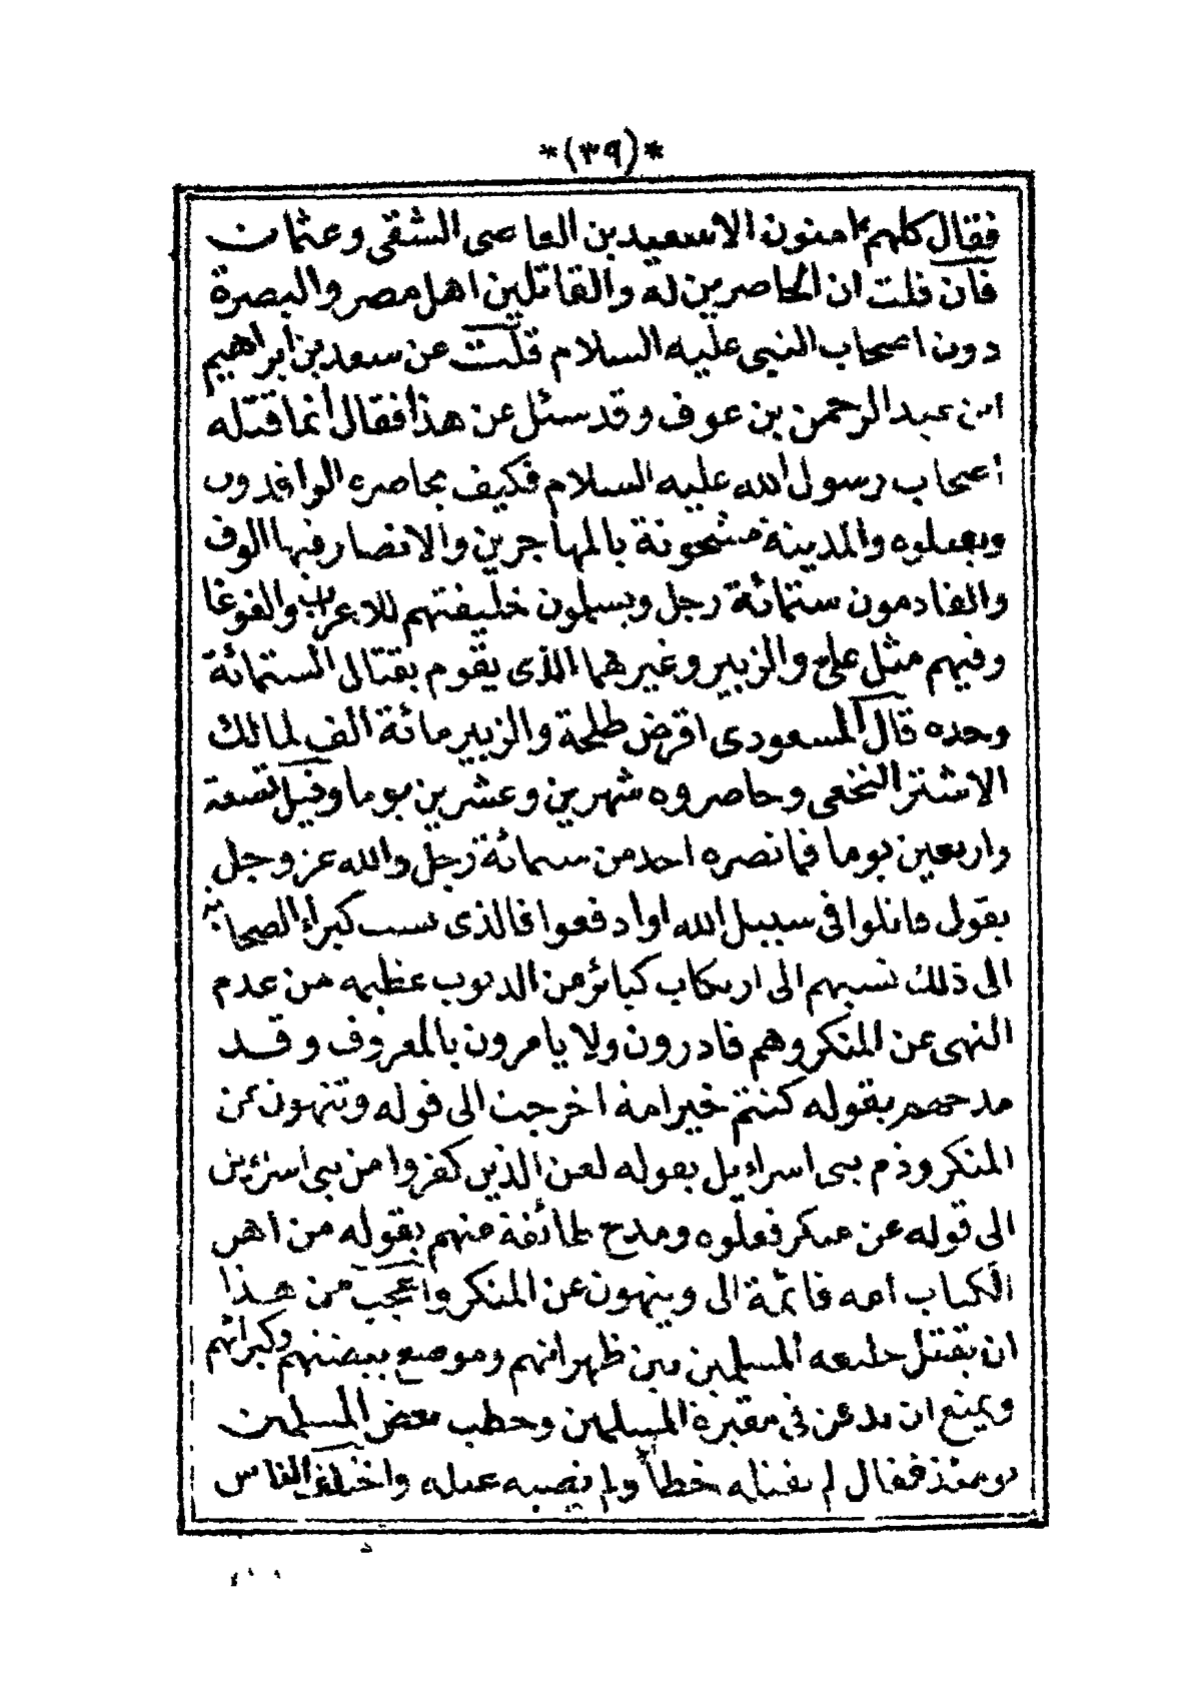 *(٣٩)*
فقال كلهم مامنون الا سعيد بن العاصى الشقى وعثمان
فان قلت ان الحاصرين له والقاتلين اهل مصر والبصرة
دون اصحاب النبى عليه السلام قلت عن سعد بن ابراهيم
ابن عبد الرحمن بن عوف وقد سئل عن هذا فقال انما قتله
اصحاب رسول الله عليه السلام فكيف يحاصره الوافدون
ويقتلوه والمدينة مشحونة بالمهاجرين والانصار فيها الوف
والقادمون ستمائة رجل ويسلمون خليفتهم للاعراب والغوغا
وفيهم مثل على والزبير وغيرهما الذى يقوم بقتال الستمائة
وحده قال المسعودى اقرض طلحة والزبير مائة الف لمالك
الاشتر النخعى وحاصروه شهرين وعشرين يوما وقيل تسعة
واربعين يوما فما نصره احد من ستمائة رجل والله عز وجل
يقول قاتلوا فى سبيل الله او ادفعوا فالذى نسب كبراء الصحابة
الى ذلك نسبهم الى ارتكاب كبائر من الذنوب عظيمة من عدم
النهى عن المنكر وهم قادرون ولا يامرون بالمعروف وقد
مدحهم بقوله كنتم خير امة اخرجت الى قوله وتنهون عن
المنكر وذم بنى اسرائيل بقوله لعن الذين كفروا من بنى اسرئيل
الى قوله عن منكر فعلوه ومدح طائفة منهم بقوله من اهل
الكتاب امة قائمة الى وينهون عن المنكر واعجب من هذا
ان يقتل خليفة المسلمين بين ظهرانهم وموضع بيضتهم وكبرائهم
ويمنع ان يدفن فى مقبرة المسلمين وخطب بعض المسلمين
يومئذ فقال لم يقتله خطأ ولم نصيبه عليه واختلف الناس